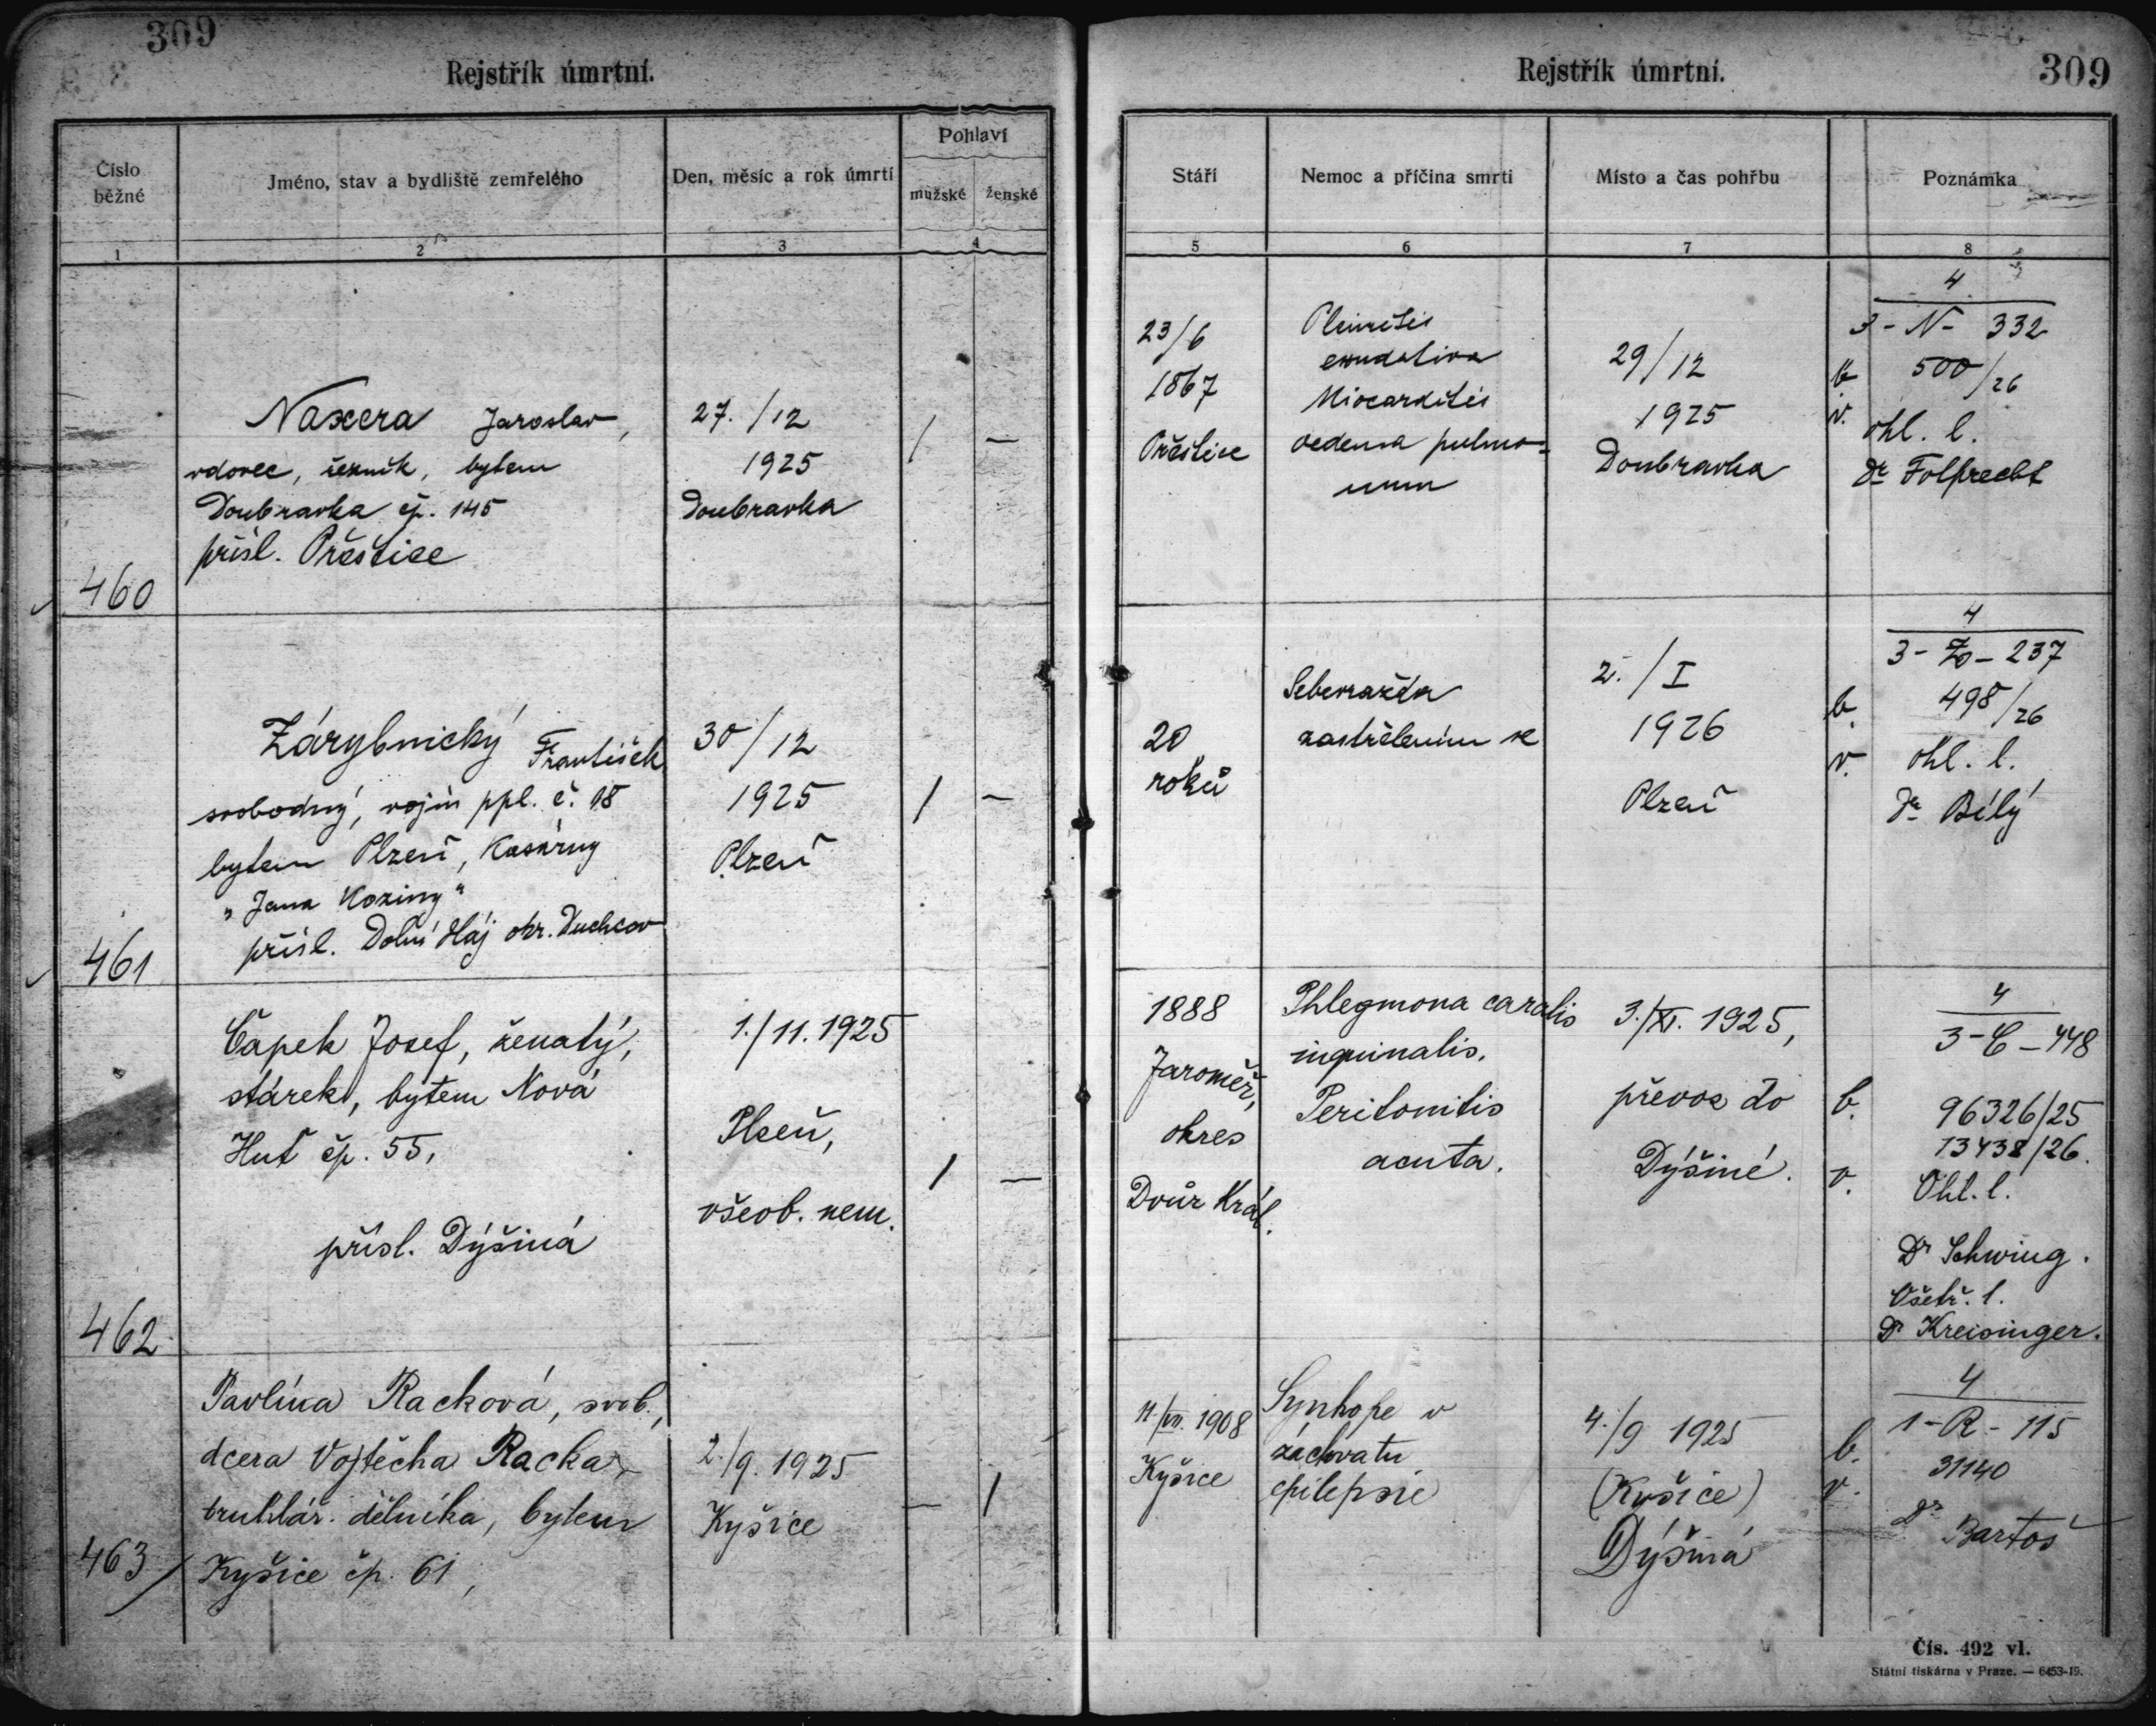 309
Rejstřík úmrtní.
Číslo běžné
Jméno, stav a bydliště zemřelého
Den, měsíc a rok úmrtí
Pohlaví
mužské
ženské
1
2
3
4
Naxera Jaroslav,
vdovec, řezník, bytem
Doubravka čp. 145
přísl. Přeštice
27./12
1925
Doubravka
/
—
460
Zárybnický František
svobodný, vojín ppl. č. 18
bytem Plzeň, Kasárny
„Jana Koziny“
přísl. Dolní Háj okr. Duchcov
30/12
1925
Plzeň
/
—
461
Čapek Josef, ženatý,
stárek, bytem Nová
Huť čp. 55,
přísl. Dýšiná
1./11. 1925
Plzeň,
všeob. nem.
/
—
462
Pavlína Racková, svob.,
dcera Vojtěcha Racka,
truhlář. dělníka, bytem
Kyšice čp. 61,
2./9. 1925
Kyšice
—
/
463
Rejstřík úmrtní.
309
Stáří
Nemoc a příčina smrti
Místo a čas pohřbu
Poznámka
5
6
7
8
23/6
1867
Přeštice
Pleuritis
exudativa
Miocarditis
oedema pulmo=
num
29/12
1925
Doubravka
b
v.
4
3-N-332
500/26
ohl. l.
Dr Folprecht
20
roků
Sebevražda
zastřelením se
2./I
1926
Plzeň
b.
v.
4
3-Z-237
498/26
ohl. l.
Dr Bílý
1888
Jaroměř,
okres
Dvůr Král.
Phlegmona
inguinalis.
Peritonitis
acuta.
3./XI. 1925,
převoz do
Dýšiné.
b.
v.
4
3-C-448
96326/25
13438/26.
Ohl. l.
Dr Schwing.
Ošetř. l.
Dr Kreisinger.
1908
Kyšice
Synkope v
záchvatu
epilepsie
4./9 1925
(Kyšice)
Dýšiná
b.
v.
4
1-R-115
31140
Dr Bartoš
Čís. 492 vl.
Státní tiskárna v Praze. — 6453-19.